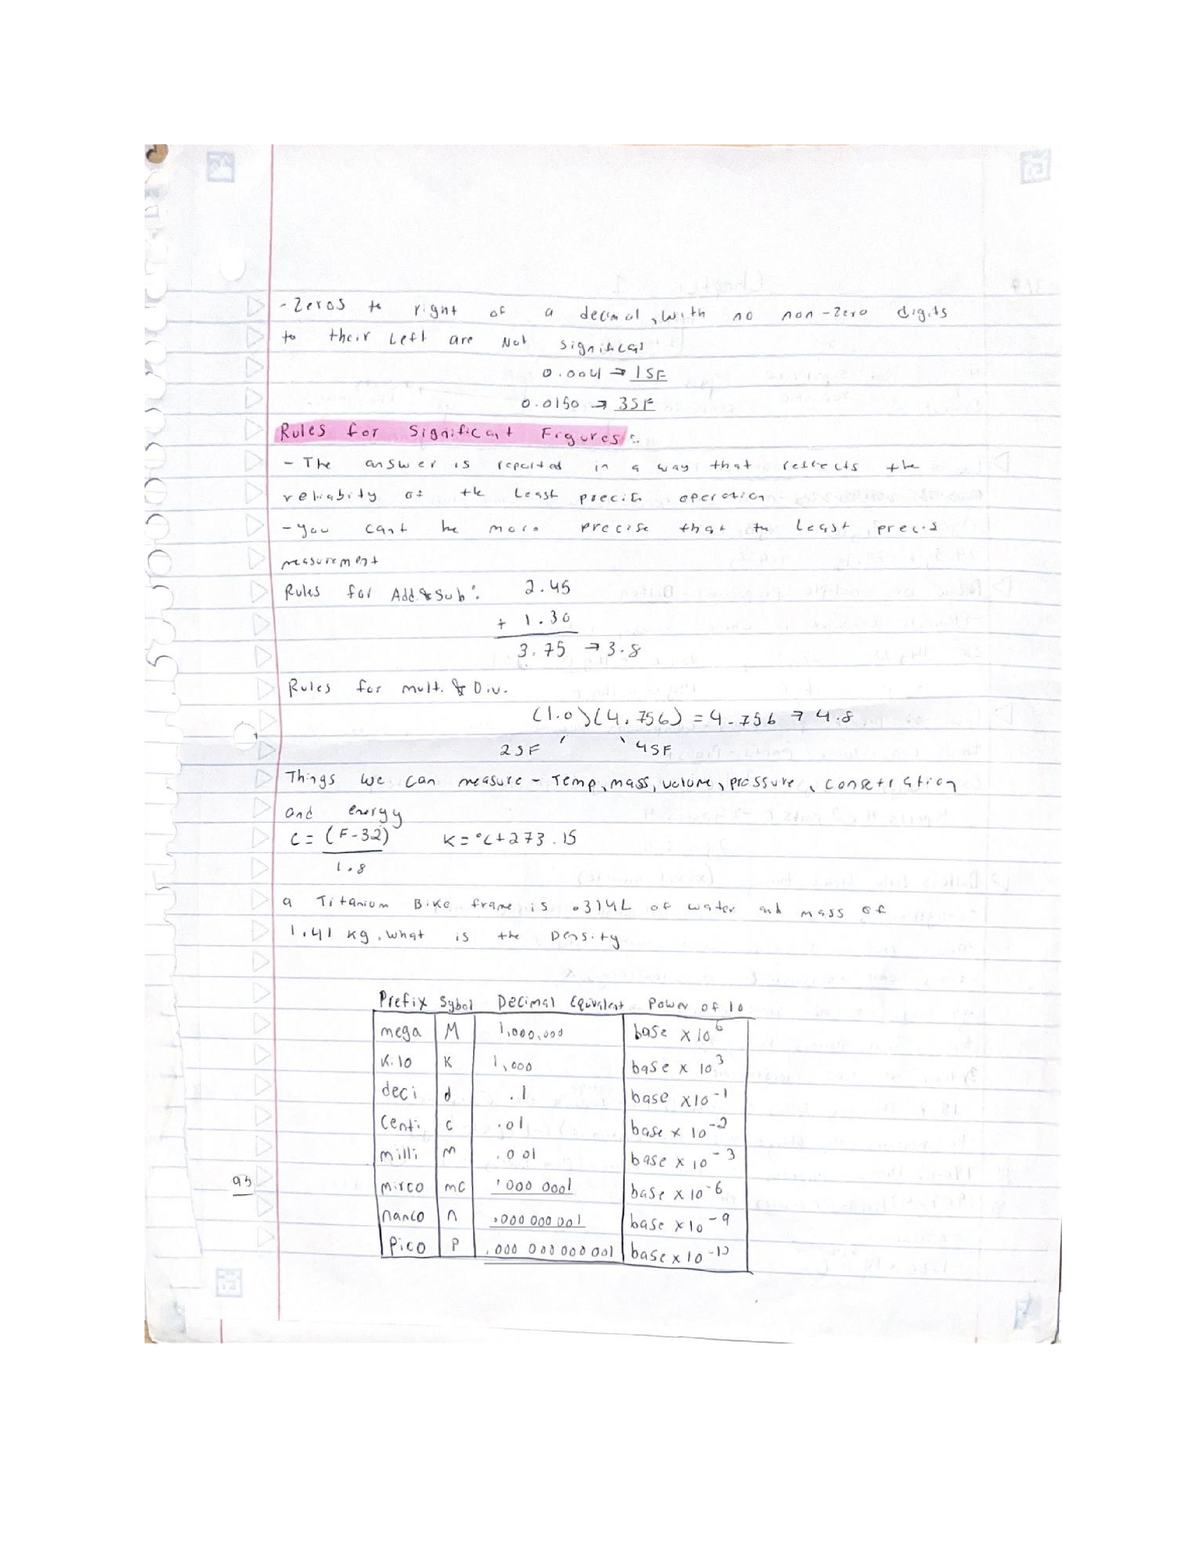 - Zeros to right of a decimal, with no non-zero digits
to their Left are Not significat
0.004 → 1SF
0.0150 → 3SF
Rules for Significant Figures:
- The answer is reported in a way that reflects the
reliabity of the Least precis operation
- you cant be more precise that the least precis
measurement
Rules for Add & Sub: 2.45
+ 1.30
3.75 → 3.8
Rules for mult. & Div.
(1.0)(4.756) = 4.756 → 4.8
2SF 4SF
Things we can measure - Temp, mass, volume, pressure,
and energy
C = (F-32) K = °C + 273.15
1.8
a Titanium Bike frame is .314L of water and mass of
1.41 kg. what is the Density
Prefix Sybol Decimal Equivalent Power of 10
mega M 1,000,000 base x 10^6
Kilo K 1,000 base x 10^3
deci d .1 base x10^-1
Centi c .01 base x 10^-2
milli m .001 base x 10^-3
mirco mc .000 0001 base x 10^-6
nanco n .000 000 001 base x10^-9
Pico P .000 000 000 001 base x 10^-12